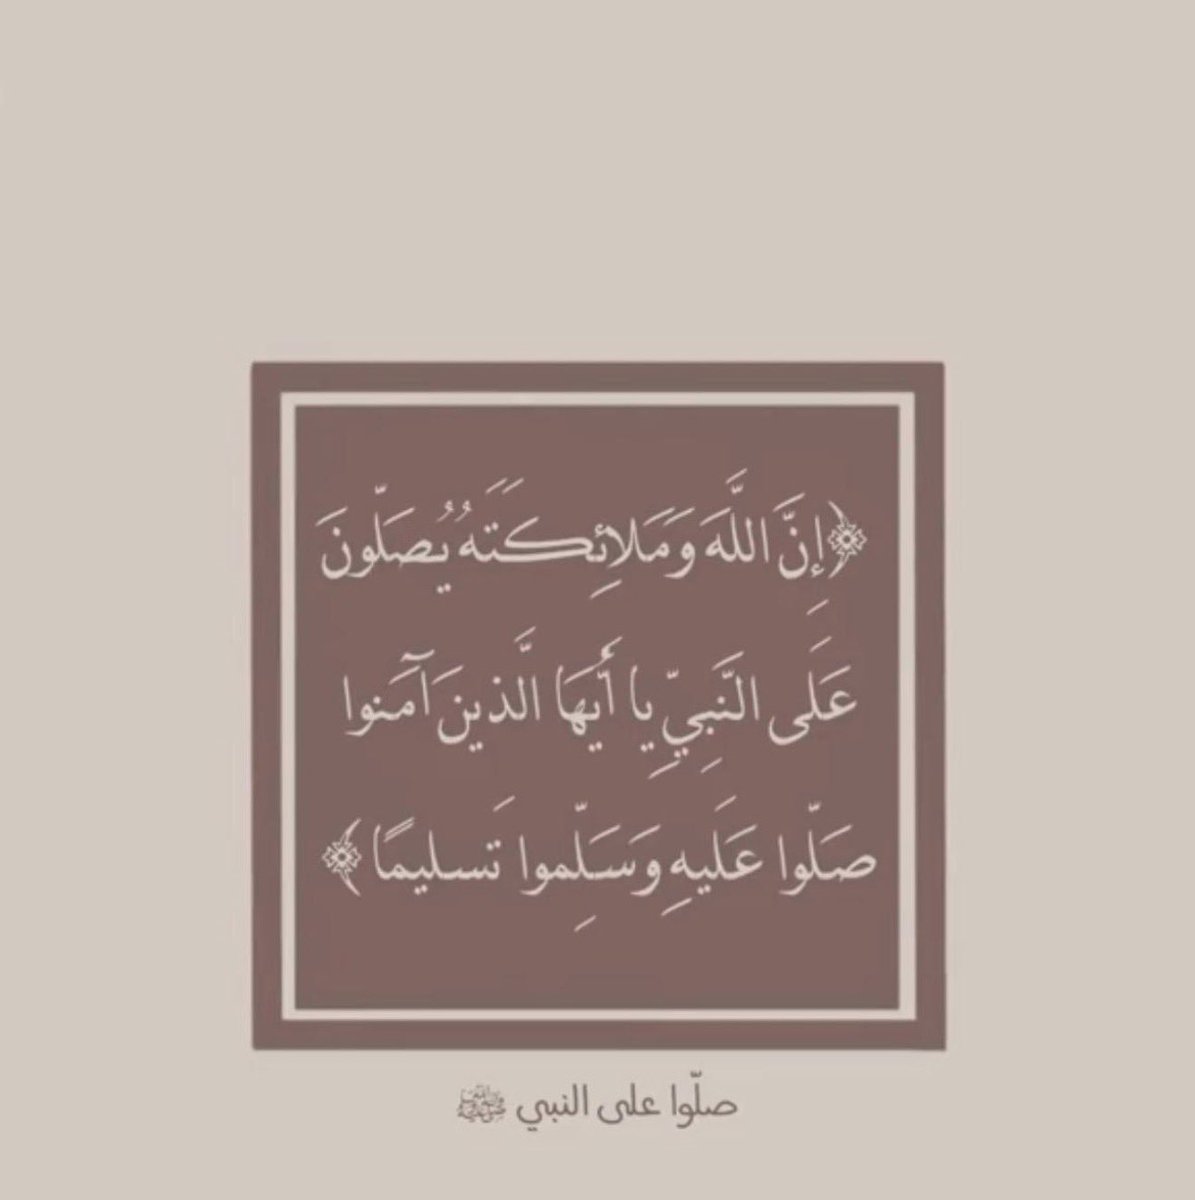 ﴿إِنَّ اللَّهَ وَمَلائِكَتَهُ يُصَلّونَ
عَلَى النَّبِيِّ يا أَيُّهَا الَّذينَ آمَنوا
صَلّوا عَلَيهِ وَسَلِّموا تَسليمًا﴾
صلّوا على النبي ﷺ